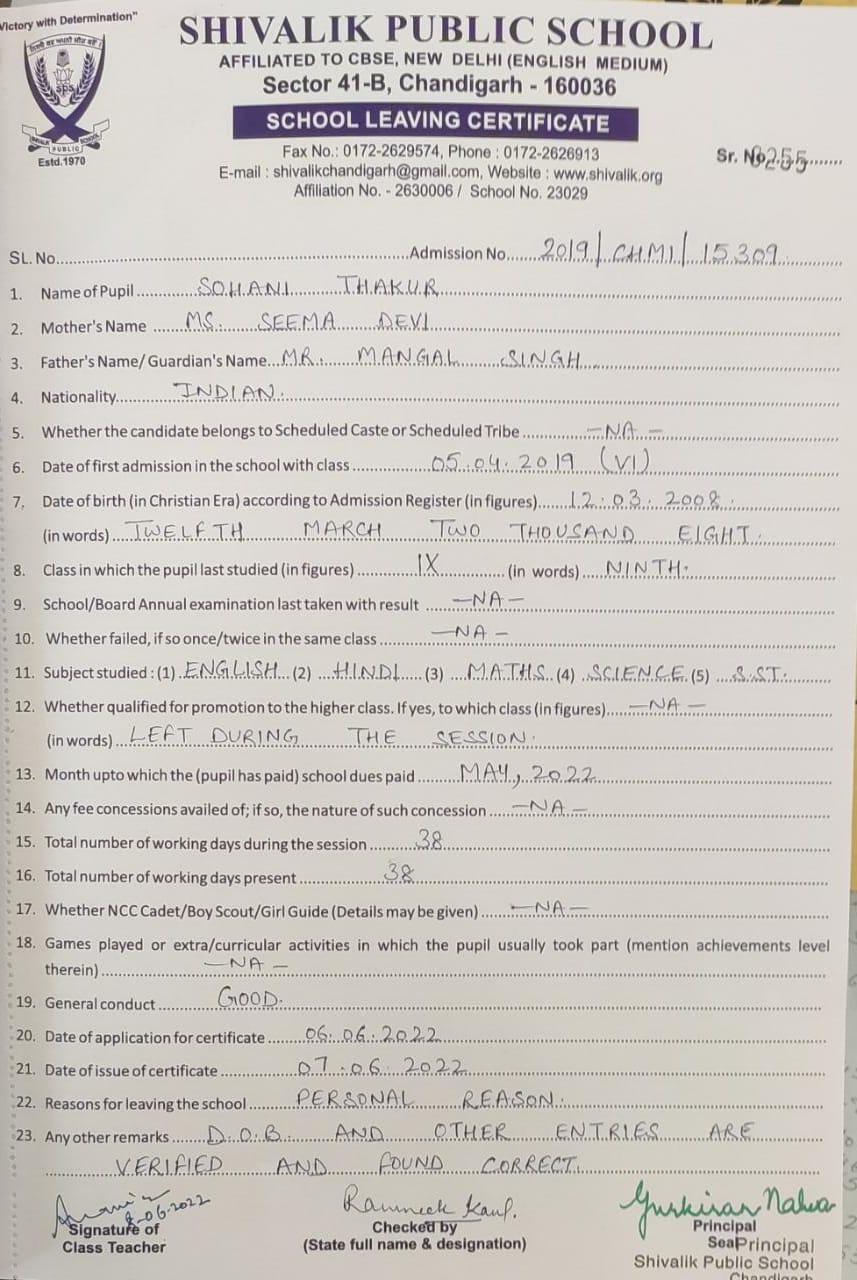 Victory with Determination"
SHIVALIK PUBLIC SCHOOL
AFFILIATED TO CBSE, NEW DELHI (ENGLISH MEDIUM)
Sector 41-B, Chandigarh - 160036
SPS
SHIVALIK PUBLIC SCHOOL
Estd.1970
SCHOOL LEAVING CERTIFICATE
Fax No.: 0172-2629574, Phone : 0172-2626913
E-mail : shivalikchandigarh@gmail.com, Website : www.shivalik.org
Affiliation No. - 2630006 / School No. 23029
Sr. No. 8255
SL. No. Admission No. 2019/CHMI/15309
1. Name of Pupil SOHANI THAKUR
2. Mother's Name MS. SEEMA DEVI
3. Father's Name/ Guardian's Name MR. MANGAL SINGH
4. Nationality INDIAN.
5. Whether the candidate belongs to Scheduled Caste or Scheduled Tribe -NA-
6. Date of first admission in the school with class 05.04.2019 (VI)
7. Date of birth (in Christian Era) according to Admission Register (in figures) 12.03.2008.
(in words) TWELFTH MARCH TWO THOUSAND EIGHT.
8. Class in which the pupil last studied (in figures) IX (in words) NINTH.
9. School/Board Annual examination last taken with result -NA-
10. Whether failed, if so once/twice in the same class -NA-
11. Subject studied : (1) ENGLISH (2) HINDI (3) MATHS (4) SCIENCE (5) S.ST.
12. Whether qualified for promotion to the higher class. If yes, to which class (in figures) -NA-
(in words) LEFT DURING THE SESSION.
13. Month upto which the (pupil has paid) school dues paid MAY, 2022
14. Any fee concessions availed of; if so, the nature of such concession -NA-
15. Total number of working days during the session 38
16. Total number of working days present 38
17. Whether NCC Cadet/Boy Scout/Girl Guide (Details may be given) -NA-
18. Games played or extra/curricular activities in which the pupil usually took part (mention achievements level
therein) -NA-
19. General conduct GOOD.
20. Date of application for certificate 06.06.2022
21. Date of issue of certificate 07.06.2022
22. Reasons for leaving the school PERSONAL REASON.
23. Any other remarks D.O.B. AND OTHER ENTRIES ARE
VERIFIED AND FOUND CORRECT.
8-06-2022
Signature of
Class Teacher
Ramneek Kaul.
Checked by
(State full name & designation)
Gurkiran Nalwa
Principal
Seal Principal
Shivalik Public School
Chandigarh